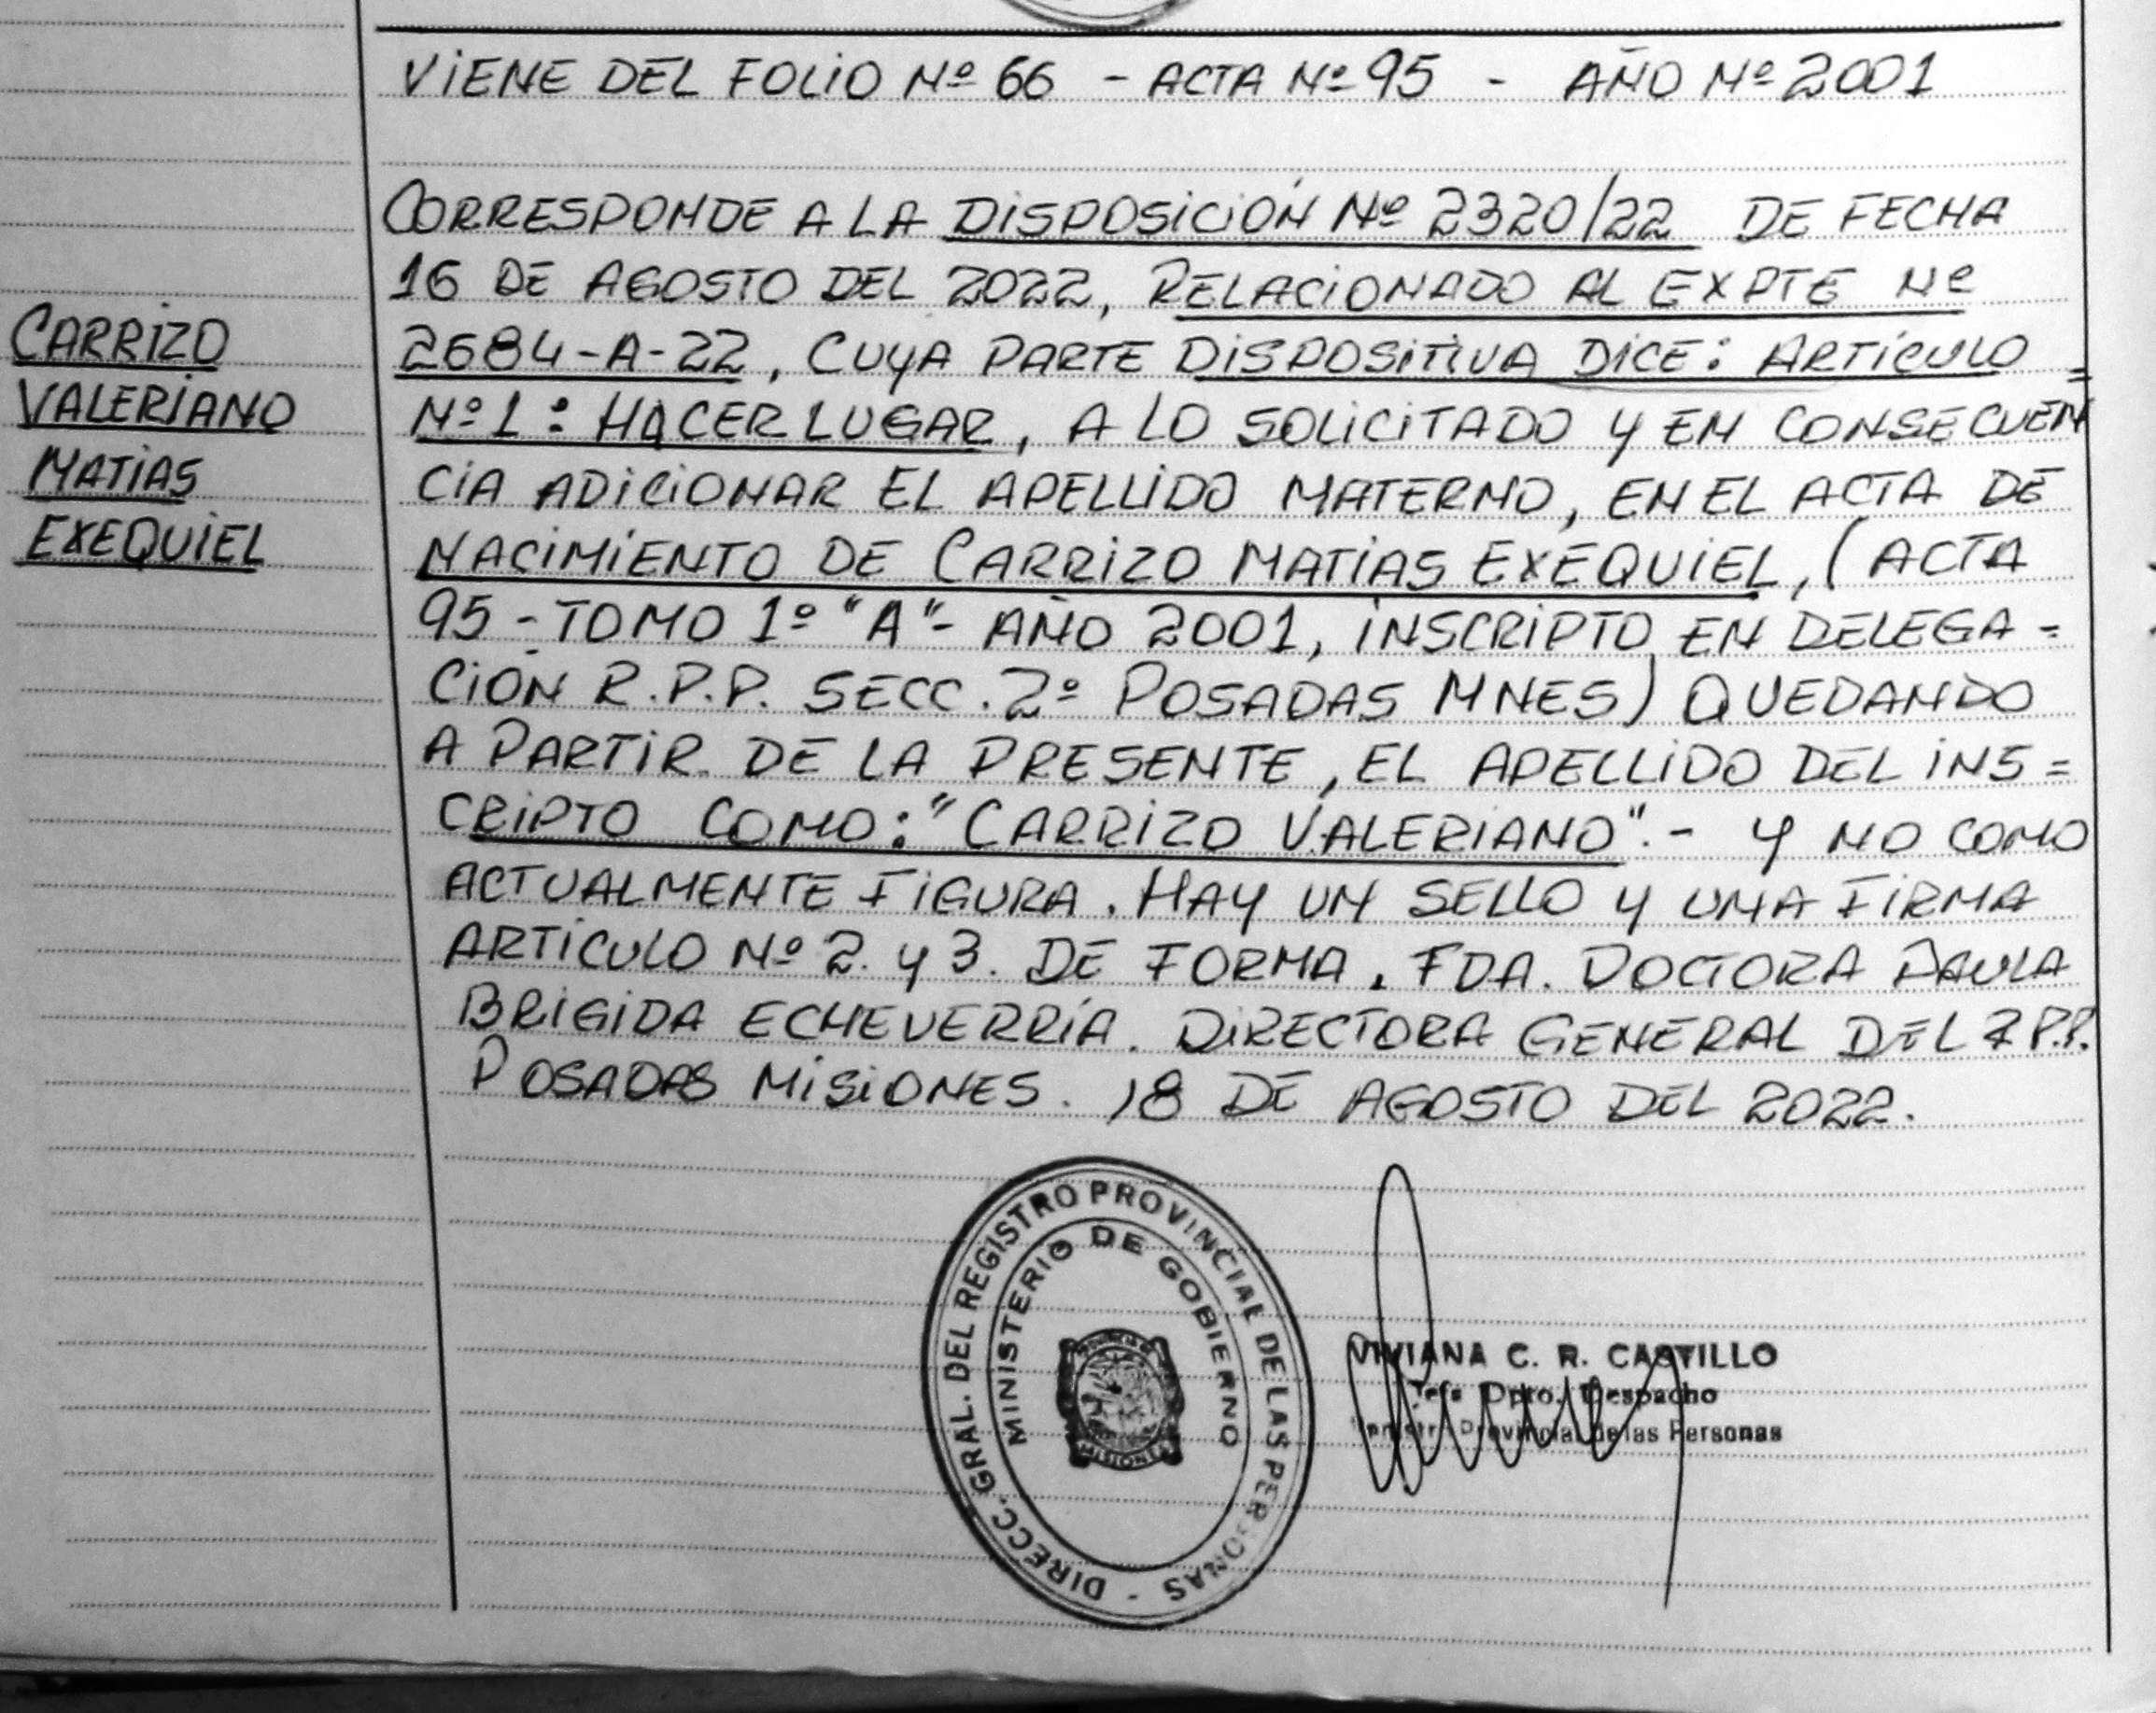 VIENE DEL FOLIO Nº 66 - ACTA Nº 95 - AÑO Nº 2001
CORRESPONDE A LA DISPOSICIÓN Nº 2320/22 DE FECHA
16 DE AGOSTO DEL 2022, RELACIONADO AL EXPTE Nº
2684-A-22, CUYA PARTE DISPOSITIVA DICE: ARTÍCULO =
Nº 1: HACER LUGAR, A LO SOLICITADO Y EN CONSECUEN
CIA ADICIONAR EL APELLIDO MATERNO, EN EL ACTA DE
NACIMIENTO DE CARRIZO MATIAS EXEQUIEL, (ACTA
95 - TOMO 1º "A" - AÑO 2001, INSCRIPTO EN DELEGA =
CIÓN R.P.P. SECC. 2º POSADAS MNES) QUEDANDO
A PARTIR DE LA PRESENTE, EL APELLIDO DEL INS =
CRIPTO COMO: "CARRIZO VALERIANO".- Y NO COMO
ACTUALMENTE FIGURA. HAY UN SELLO Y UNA FIRMA
ARTÍCULO Nº 2. Y 3. DE FORMA. FDA. DOCTORA PAULA
BRIGIDA ECHEVERRÍA. DIRECTORA GENERAL DEL R.P.P.
POSADAS MISIONES. 18 DE AGOSTO DEL 2022.
CARRIZO
VALERIANO
MATIAS
EXEQUIEL
DIRECC. GRAL. DEL REGISTRO PROVINCIAL DE LAS PERSONAS -
MINISTERIO DE GOBIERNO
MISIONES
VIVIANA C. R. CASTILLO
Jefe Dpto. Despacho
Registro Provincial de las Personas